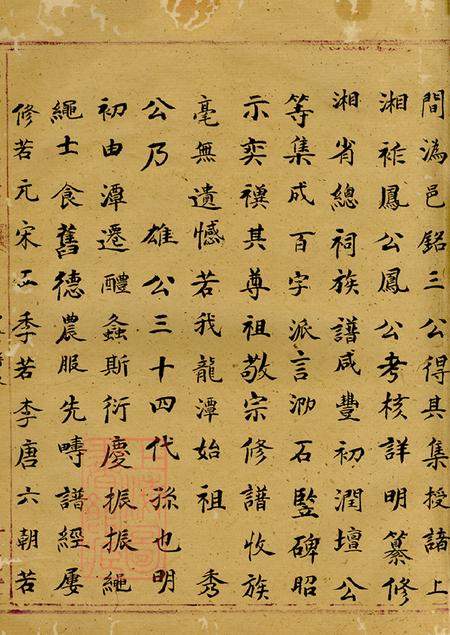 間溈邑銘三公得其集授諸上
湘祚鳳公鳳公考核詳明纂修
湘省總祠族譜咸豐初潤壇公
等集成百字派言泐石豎碑昭
示奕禩其尊祖敬宗修譜收族
毫無遺憾若我龍潭始祖 秀
公乃 雄公三十四代孫也明
初由潭遷醴螽斯衍慶振振繩
繩士食舊德農服先疇譜經屢
修若元宋五季若李唐六朝若